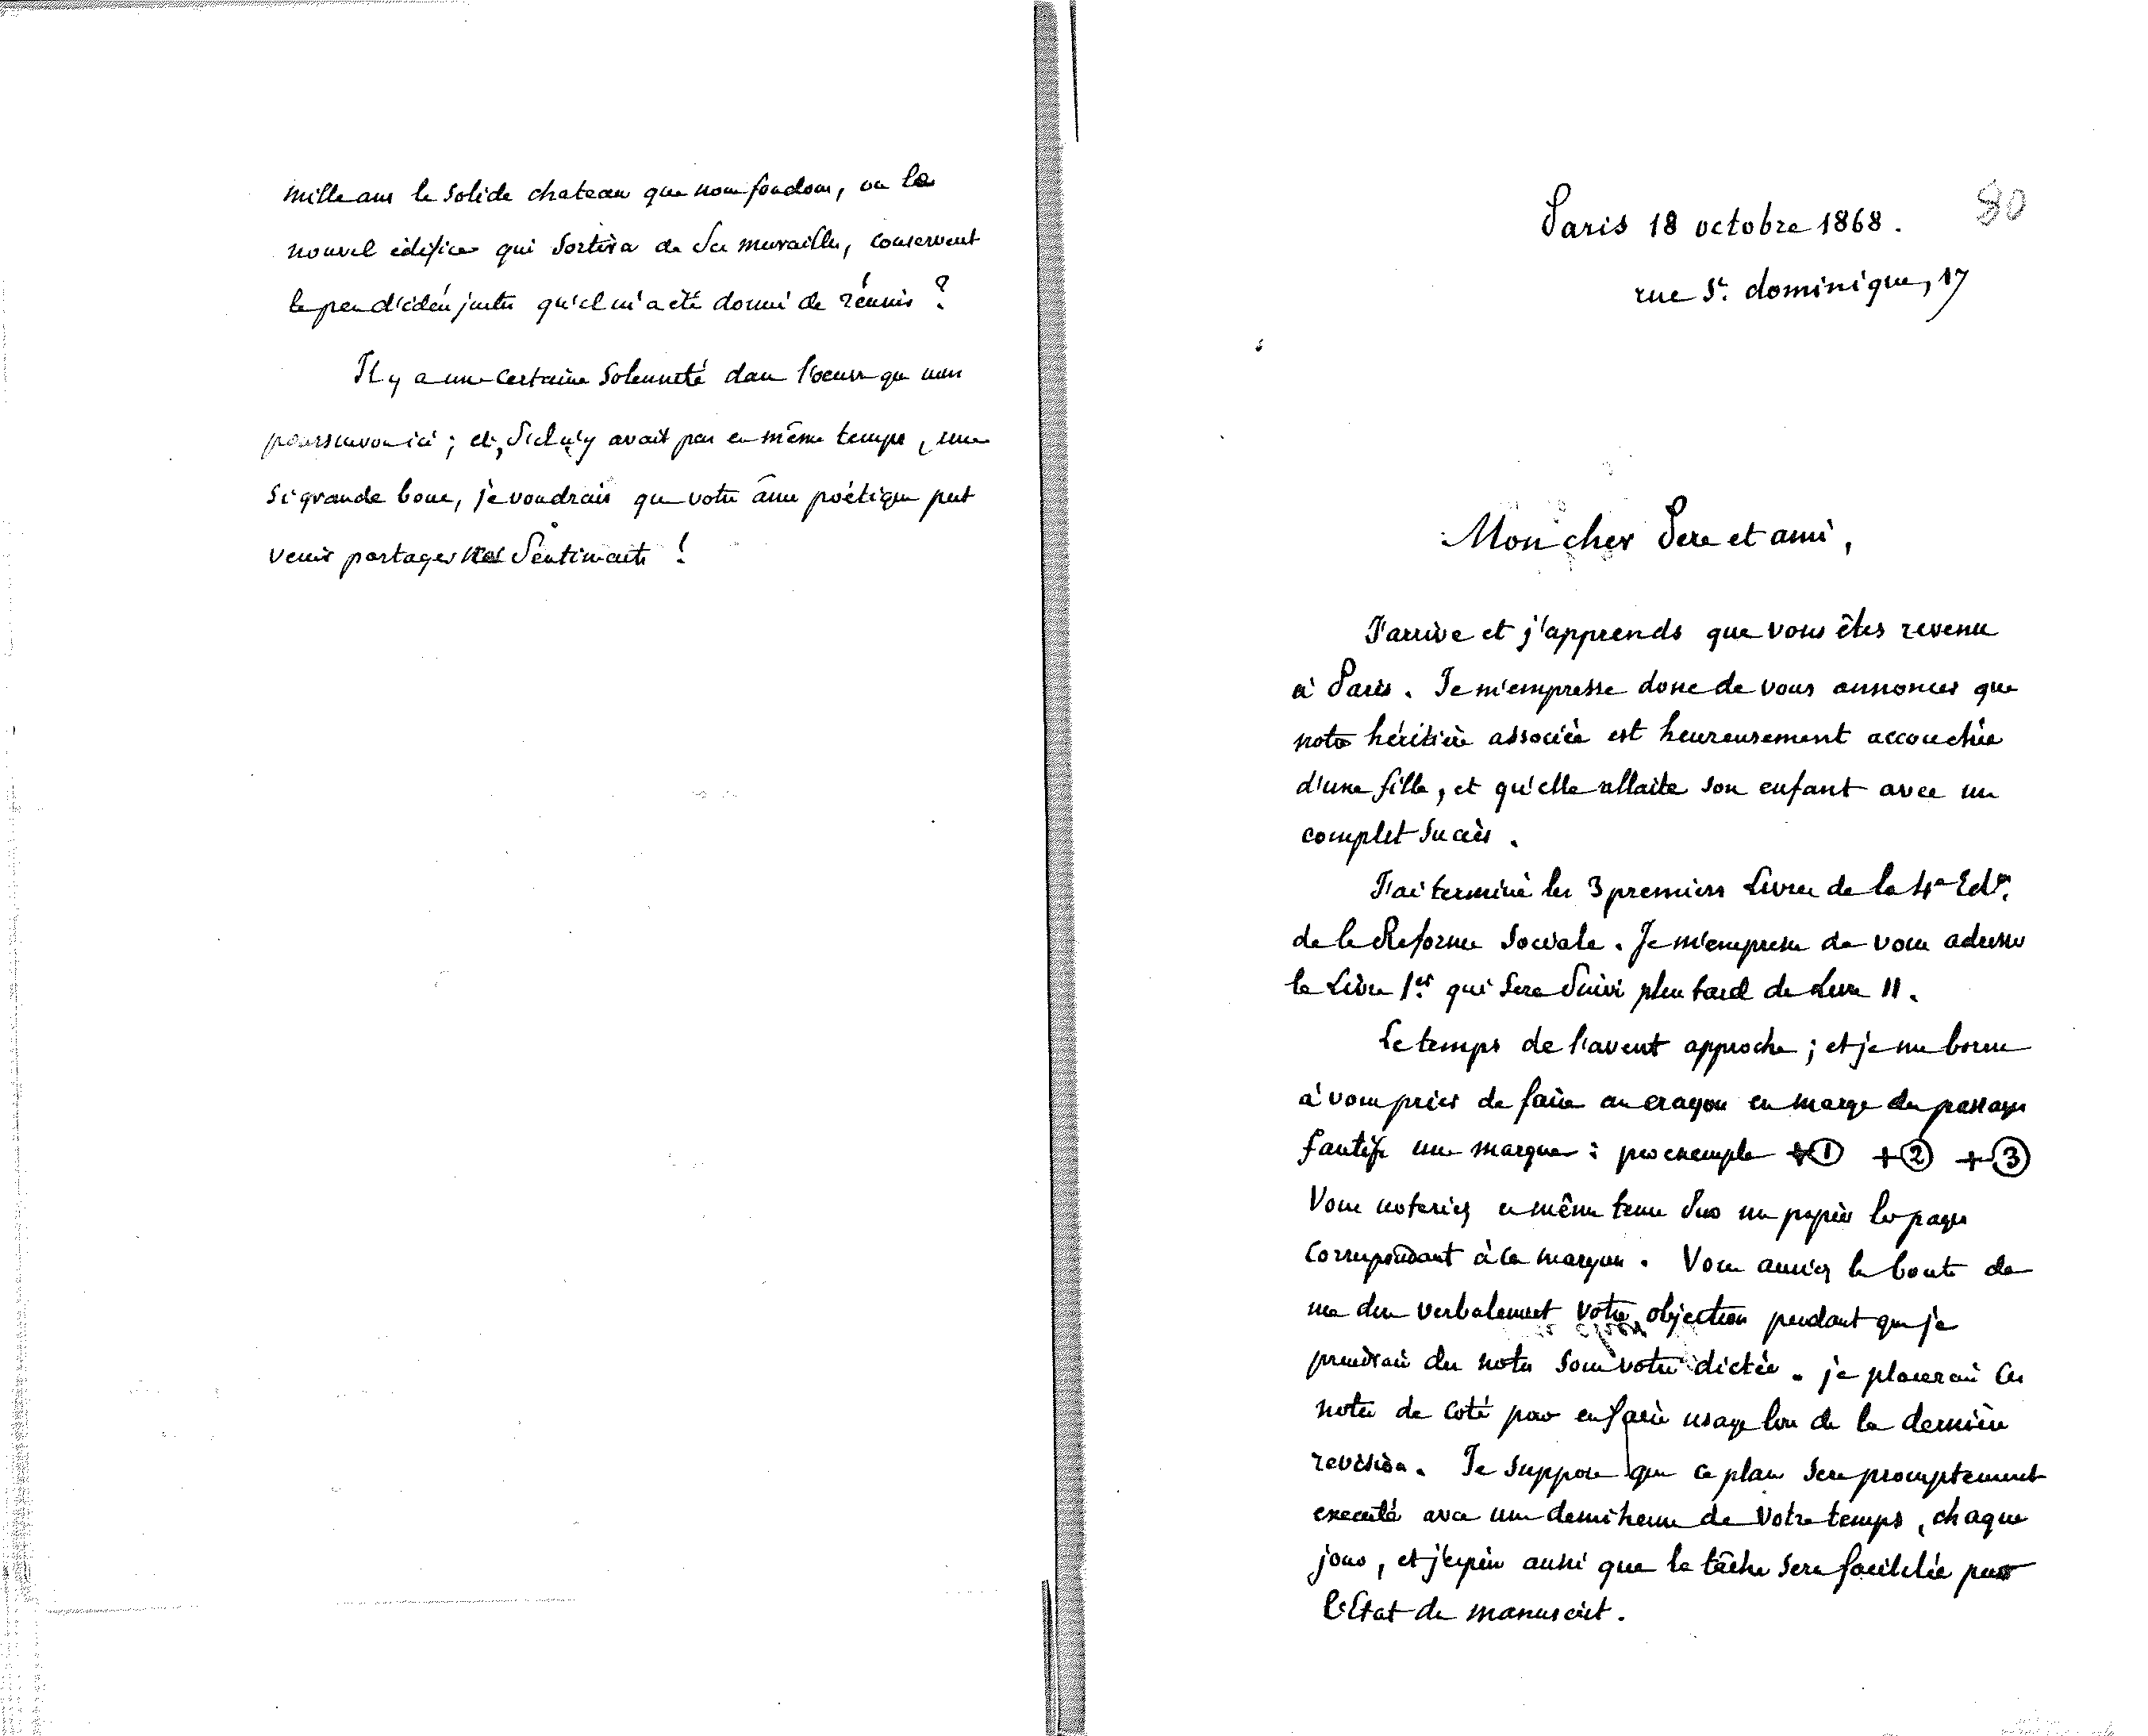 mille ans le solide chateau que nous fondons, ou le
nouvel édifice qui sortira de ses murailles, conservent
le peu d'idées justes qu'il m'a été donné de réunir ?
Il y a une certaine solennité dans l'oeuvre que nous
poursuivons ici ; et, s'il n'y avait pas en même temps, une
si grande boue, je voudrais que votre âme poétique put
venir partager nos sentiments !
80
Paris 18 octobre 1868.
rue St. dominique, 17
Mon cher Père et ami,
J'arrive et j'apprends que vous êtes revenu
à Paris. Je m'empresse donc de vous annoncer que
notre héritière associée est heureusement accouchée
d'une fille, et qu'elle allaite son enfant avec un
complet succès.
J'ai terminé les 3 premiers Livres de la 4e Edon.
de la Réforme Sociale. Je m'empresse de vous adresser
le Livre 1er qui sera suivi plus tard du Livre II.
Le temps de l'avent approche ; et je me borne
à vous prier de faire au crayon en marge des passages
fautifs une marque : par exemple +① +② +③
Vous noteriez en même temps sur un papier les pages
correspondant à la marque. Vous auriez la bonté de
me dire verbalement votre objection pendant que je
prendrais des notes sous votre dictée. je placerai ces
notes de coté pour en faire usage lors de la dernière
revision. Je suppose que ce plan sera promptement
executé avec une demi heure de votre temps, chaque
jour, et j'espère aussi que la tâche sera facilitée par
l'Etat du manuscrit.